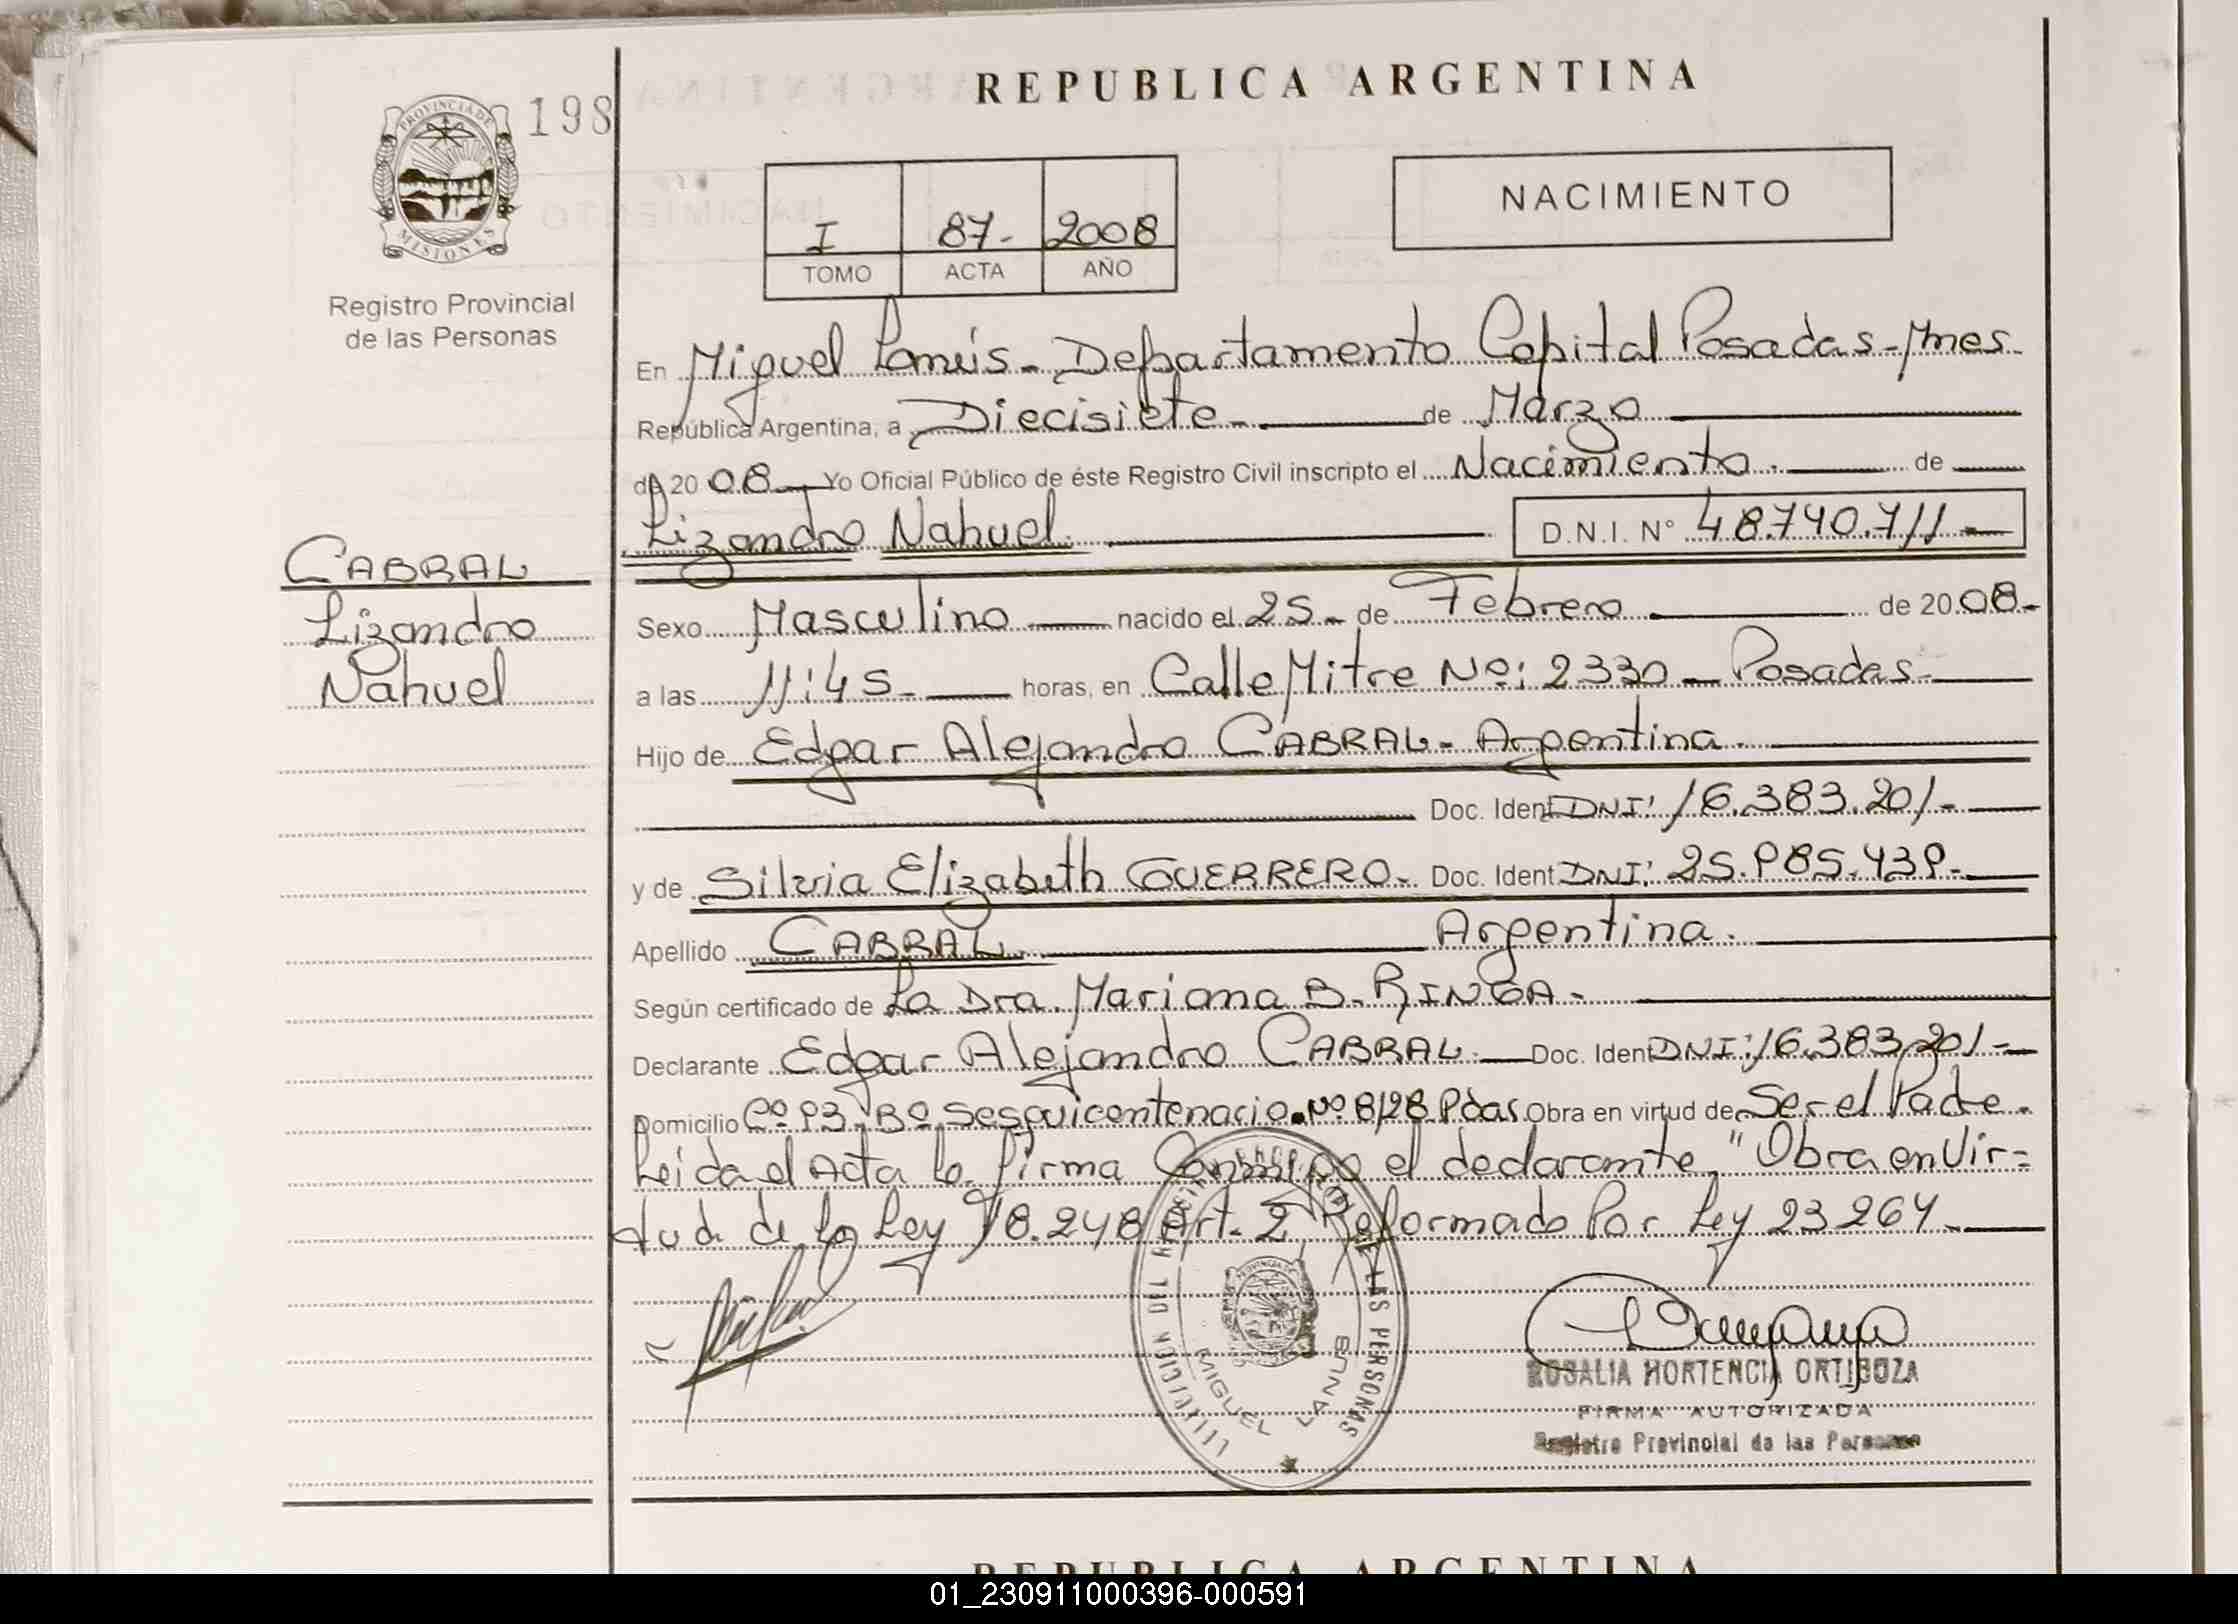 REPUBLICA ARGENTINA
PROVINCIA DE MISIONES
198
Registro Provincial
de las Personas
NACIMIENTO
I 87- 2008
TOMO ACTA AÑO
En Miguel Lanús - Departamento Capital Posadas - Mnes.
República Argentina, a Diecisiete - de Marzo
de 2008 - Yo Oficial Público de éste Registro Civil inscripto el Nacimiento - de
Lizandro Nahuel. D.N.I. N° 48.740.711.-
CABRAL
Lizandro
Nahuel
Sexo Masculino nacido el 25 - de Febrero de 2008.-
a las 11:45 - horas, en Calle Mitre Nº: 2330 - Posadas -
Hijo de Edgar Alejandro CABRAL - Argentina -
Doc. Ident DNI: 16.383.201 -
y de Silvia Elizabeth GUERRERO - Doc. Ident DNI: 25.985.439 -
Apellido CABRAL Argentina -
Según certificado de La Dra. Mariana B. RINGA -
Declarante Edgar Alejandro CABRAL - Doc. Ident DNI: 16.383.201 -
Domicilio 93 Bº Sesquicentenario. Nº 8128 Pdas. Obra en virtud de Ser el Padre.
Leida el Acta la firma Conmigo el declarante, "Obra en Vir=
tud de la Ley 18.248 Art. 2 Reformado Por Ley 23264 -
DE LAS PERSONAS
MIGUEL LANUS
ROSALIA HORTENCIA ORTIGOZA
FIRMA AUTORIZADA
Registro Provincial de las Personas
REPUBLICA ARGENTINA
01_230911000396-000591